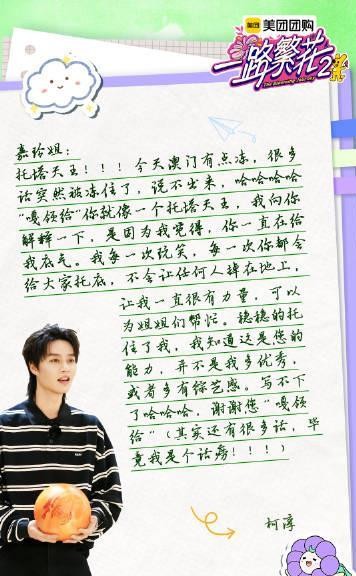 美团 美团团购
一路繁花2
嘉玲姐：
托塔天王！！！今天澳门有点冻，很多
话突然被冻住了，说不出来，哈哈哈哈
“嘎领给”你就像一个托塔天王，我向你
解释一下，是因为我觉得，你一直在给
我底气。我每一次玩笑，每一次你都会
给大家托底，不会让任何人掉在地上，
让我一直很有力量，可以
为姐姐们帮忙。稳稳的托
住了我，我知道这是您的
能力，并不是我多优秀，
或者多有综艺感。写不下
了哈哈哈，谢谢您“嘎领
给”（其实还有很多话，毕
竟我是个话痨！！！）
柯淳